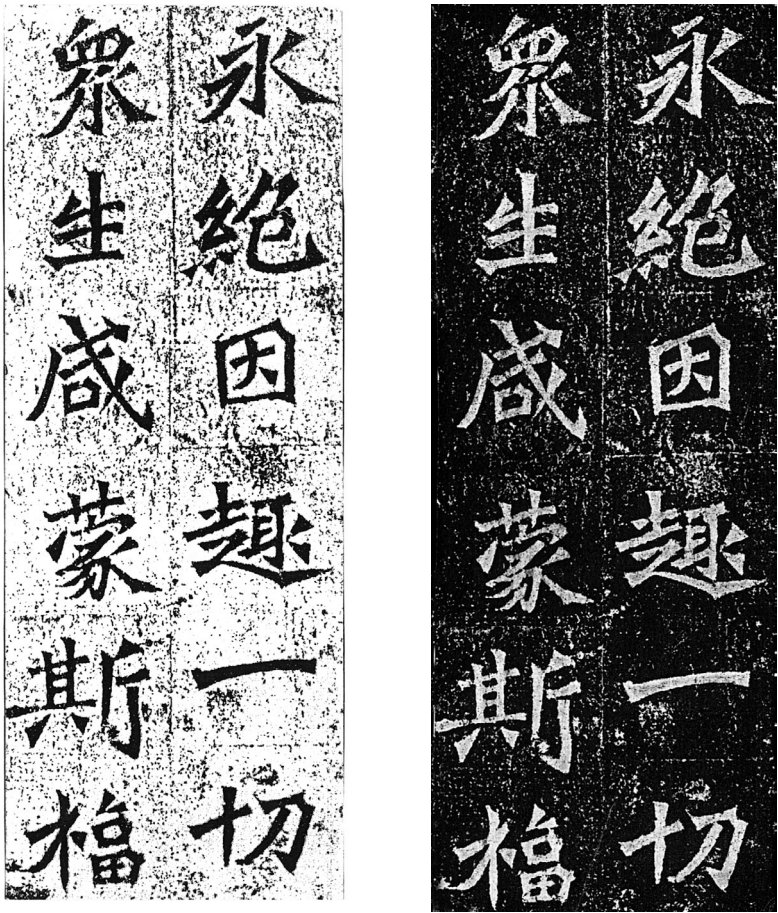 永絶因趣一切
衆生咸蒙斯福
永絶因趣一切
衆生咸蒙斯福